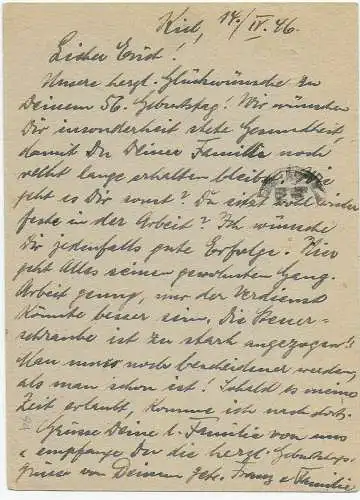 Kiel, 14./IV. 46.
Lieber Erich!
Unsere herzl. Glückwünsche zu
Deinem 56. Geburtstag! Wir wünschen
Dir insonderheit stete Gesundheit,
damit Du Deiner Familie noch
recht lange erhalten bleibst. Wie
geht es Dir sonst? Du sitzt wohl wieder
feste in der Arbeit? Ich wünsche
Dir jedenfalls gute Erfolge. Hier
geht Alles seinen gewohnten Gang.
Arbeit genug, nur der Verdienst
könnte besser sein. Die Steuer-
schraube ist zu stark angezogen!!
Man muss noch bescheidener werden,
als man schon ist! Sobald es meine
Zeit erlaubt, komme ich nach dort.
Grüsse Deine l. Familie von uns
u. empfange Du die herzl. Geburtstags-
grüsse von Deinem getr. Franz u. Familie